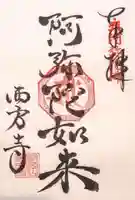 奉拝
阿弥陀如来
西方寺